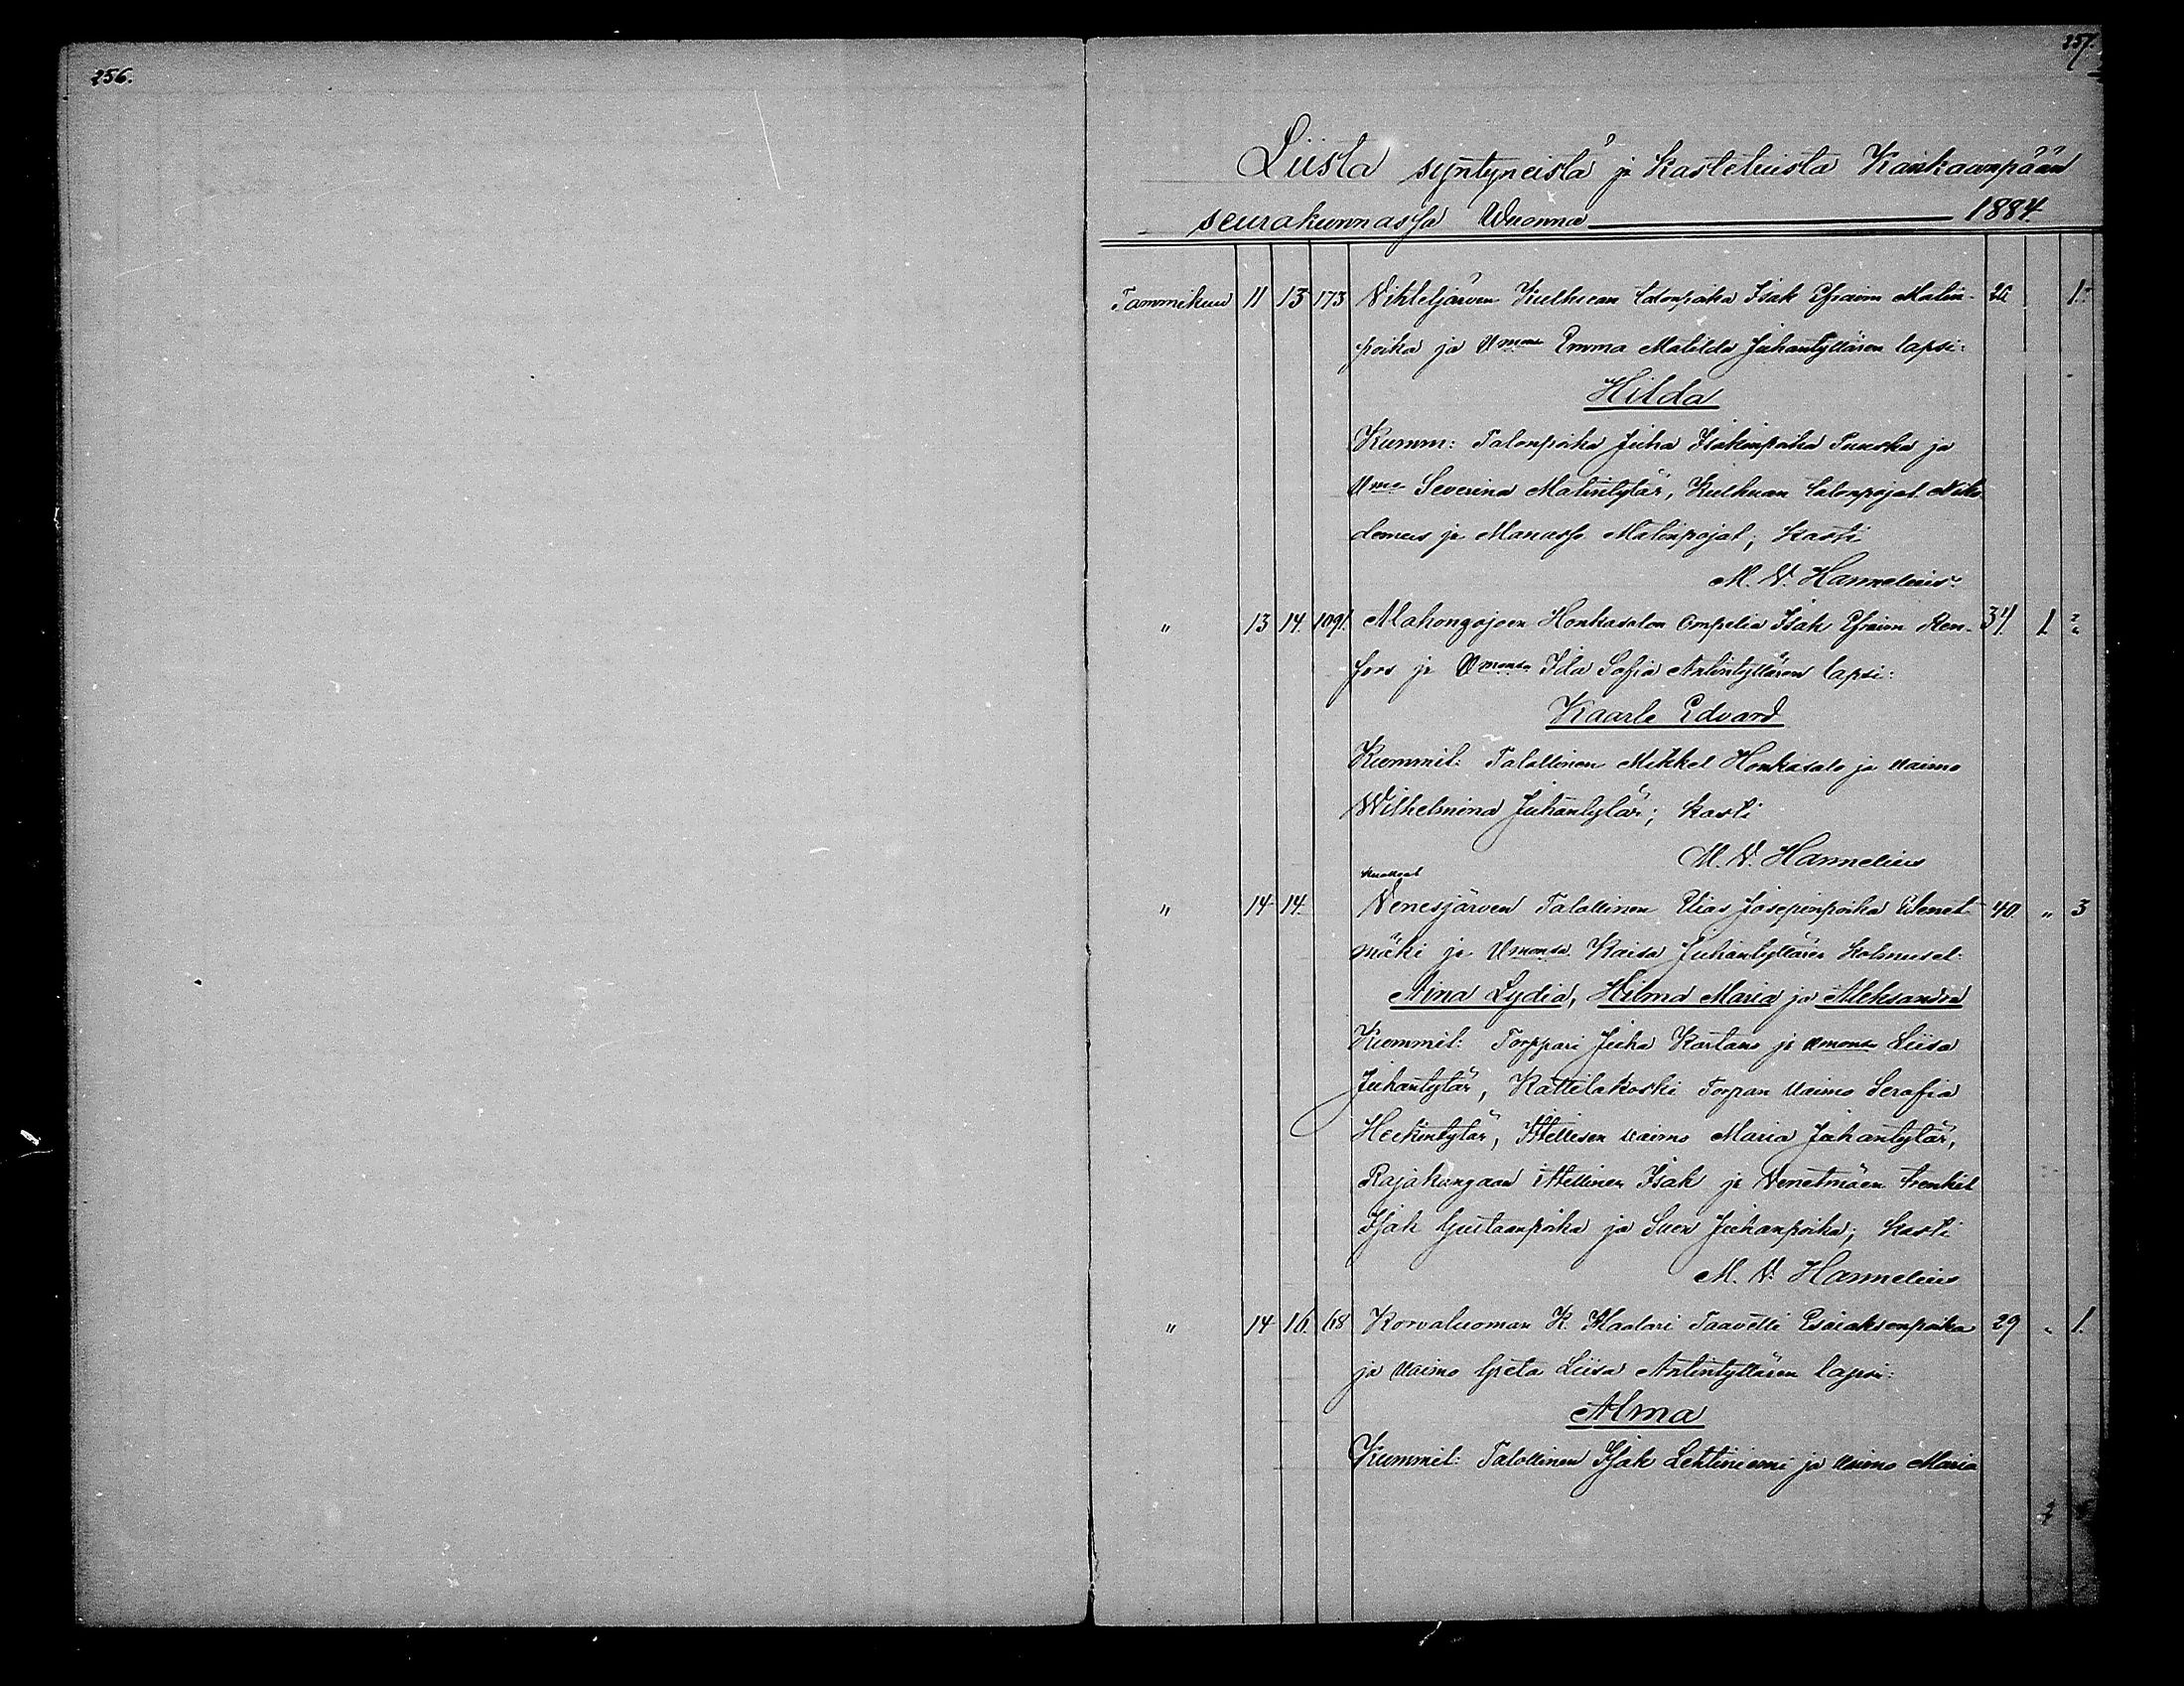 256.
257.
Liista syntyneistä ja kastetuista Kankaanpään
seurakunnassa Wuonna 1884.
Tammikuu 11 13 173 Vihteljärven Kulhuan talonpoika Isak Efraim Matin- 26 1.
poika ja Vmonsa Emma Matilda Juhantyttären lapsi:
Hilda
Kumm: Talonpoika Juha Isakinpoika ja
Vmo Severina Matintytär, Kulhuan talonpojat Niko
demus ja Manasse Matinpojat; kasti
M. V. Hannelius.
" 13 14. 1091. Mahongojoen Honkasalon Isak Efraim Ren- 34. 1
fors ja Vmonsa Ida Sofia Antintyttären lapsi:
Kaarle Edvard
Kummit: Talollinen Mikkel Honkasalo ja vaimo
Wilhelmina Juhantytär; kasti
M. V. Hannelius
" 14 14. Venesjärven Talollinen Elias Josepinpoika Venet- 40. " 3
mäki ja Vmonsa Kaisa Juhantyttären kolmuset:
Aina Lydia, Hilma Maria ja Aleksandra
Kummit: Torppari Juha Kartano ja Vmonsa Liisa
Juhantytär, Kattilakoski Torpan vaimo Serafia
Heikintytär, Ittellisen vaimo Maria Juhantytär,
Rajakangaan ittellinen Isak ja Venetmäen trenkit
Isak Gustaanpoika ja Juhanpoika; kasti
M. V. Hannelius
" 14 16. 68 Korvaluoman K. Maalari Taavetti Esaiaksenpoika 29 " 1.
ja vaimo Greta Liisa Antintyttären lapsi:
Alma
Kummit: Talollinen Isak Lehtiniemi ja vaimo Maria